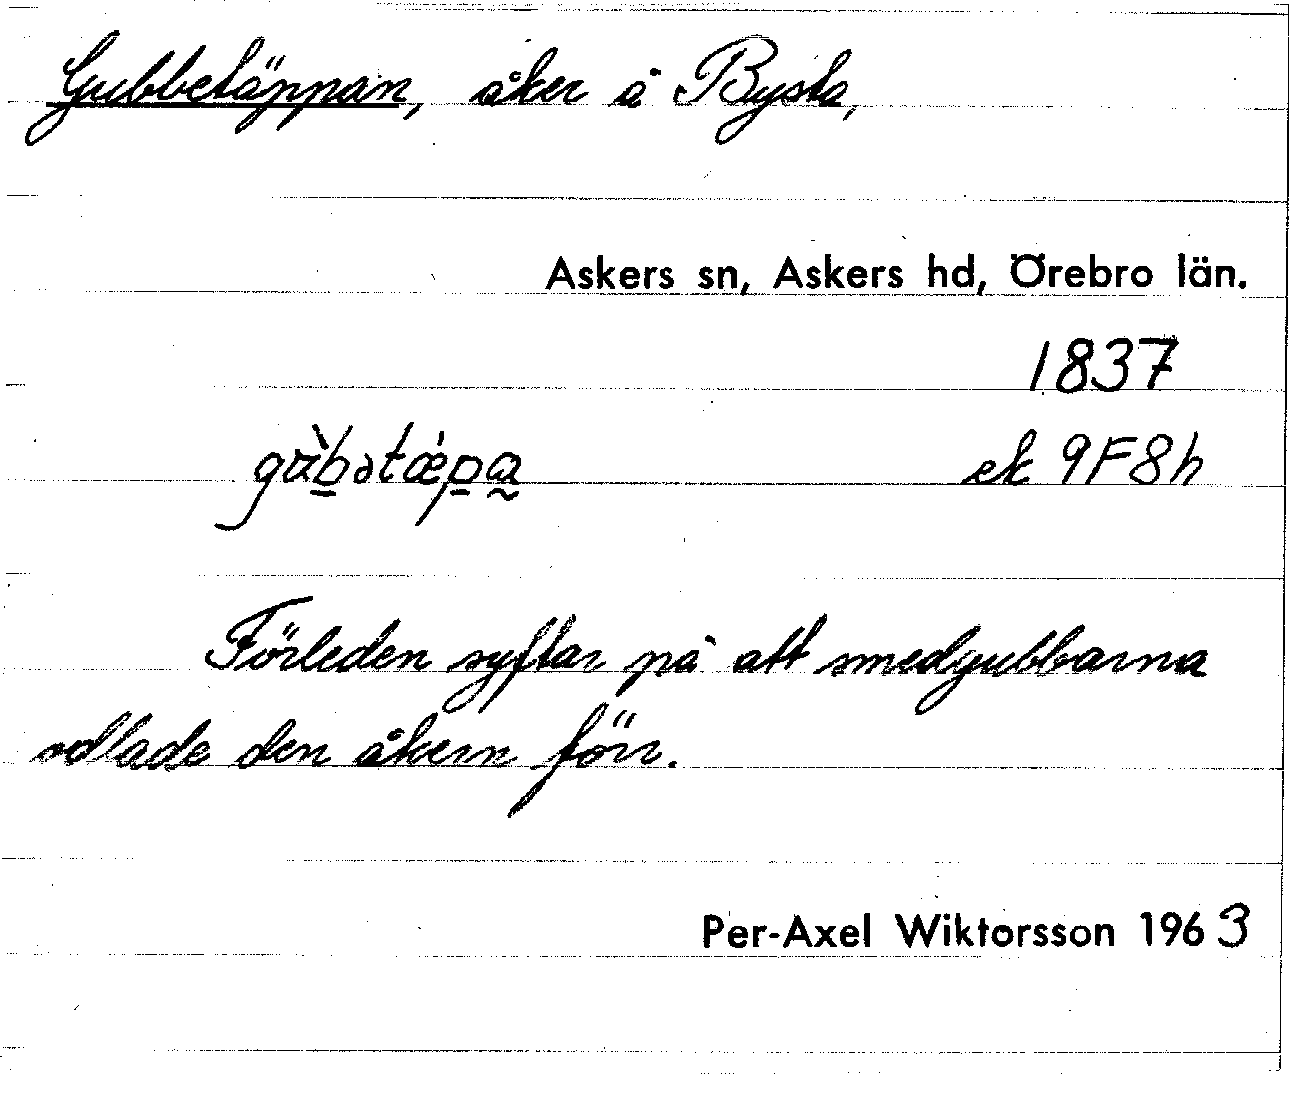 Gubbetäppan, åker å Bysta,
Askers sn, Askers hd, Örebro län.
1837
gʉ̀b̲ətǽp̲a̰ ek 9F8h
Förleden syftar på att smedgubbarna
odlade den åkern förr.
Per-Axel Wiktorsson 1963